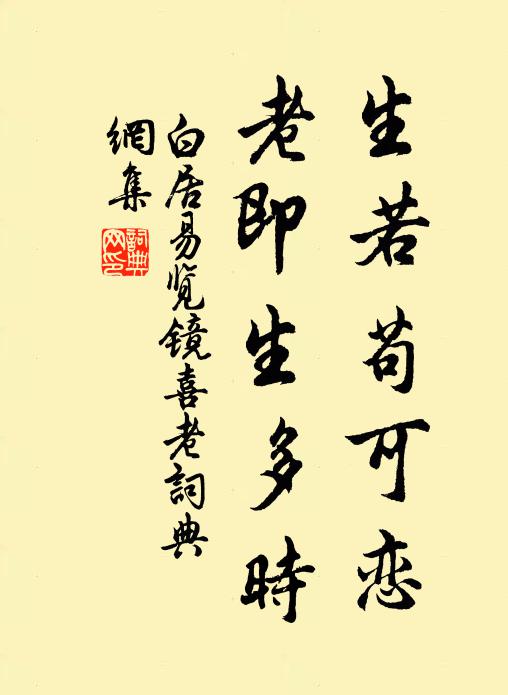 生若苟可恋
老即生多時
白居易覧鏡喜老詞典
網集
詞典网印